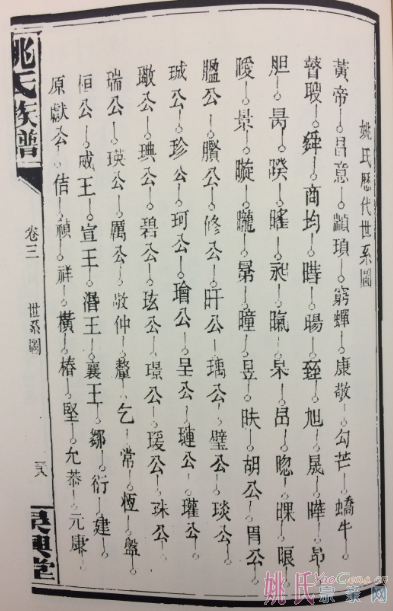 姚氏歷代世系圖
黃帝 昌意 顓頊 窮蟬 康敬 勾芒 蟜牛
瞽瞍 舜 商均 時 暘 臸 旭 晟 曄 昴
胆 暠 暌 暚 昶 㬎 杲 昌 㫚 暞 眼
曖 景 暶 曨 晜 曈 昱 昳 胡公 胃公
腽公 臏公 修公 旰公 瑀公 璧公 琰公
珹公 珍公 珂公 瑜公 呈公 璉公 瓘公
璥公 琠公 碧公 玹公 璟公 瑗公 珠公
瑞公 瑛公 厲公 敬仲 犛 乞 常 恆 盤
桓公 威王 宣王 湣王 襄王 鄒 衍 建
原獻公 佶 禎 祥 橫 椿 堅 允恭 元康
姚氏族譜
卷三
世系圖
三八
民興堂
姚氏
YaoGens.cn